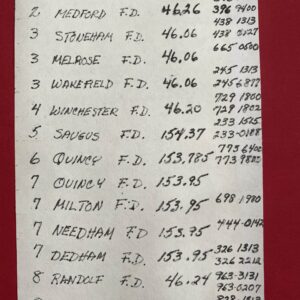 2 MEDFORD F.D. 46.26 396 9400
438 1313
3 STONEHAM F.D. 46.06 438 0127
665 0500
3 MELROSE F.D. 46.06
245 1313
3 WAKEFIELD F.D. 46.06 245 6877
729 1800
4 WINCHESTER F.D. 46.20 729 1802
233 1525
5 SAUGUS F.D. 154.37 233-0188
773 6400
6 QUINCY F.D. 153.785 773
7 QUINCY F.D. 153.95
7 MILTON F.D. 153.95 698 1980
7 NEEDHAM F.D. 153.95 444-0142
7 DEDHAM F.D. 153.95 326 1313
326 2212
8 RANDOLF F.D. 46.24 963-3131
963-0207
828 1313